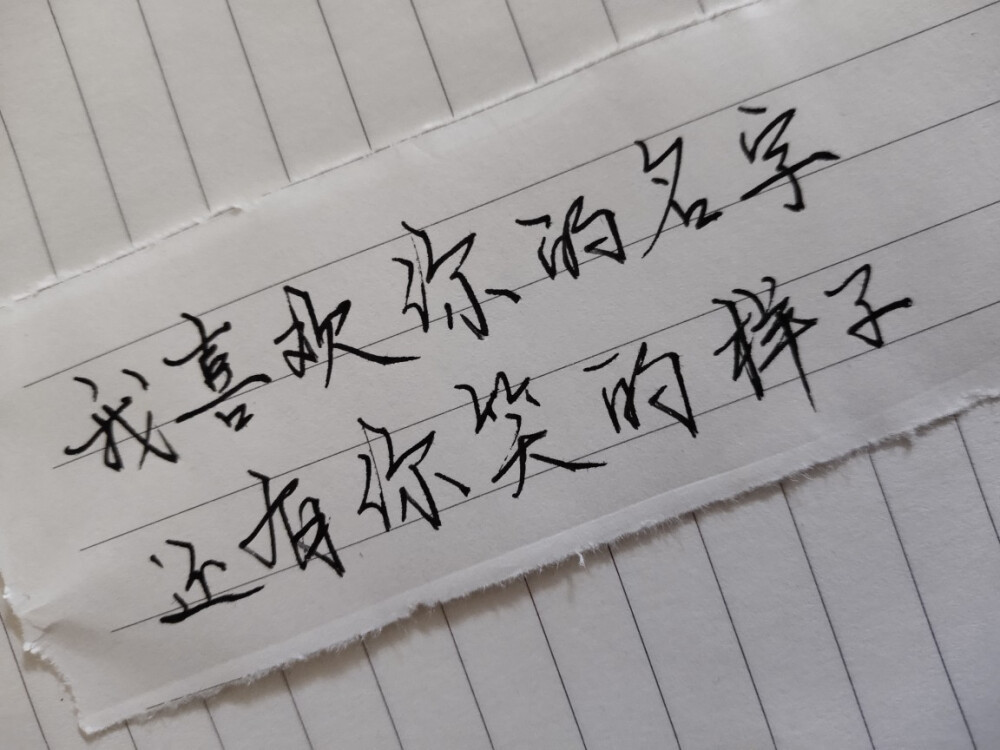 我喜欢你的名字
还有你笑的样子